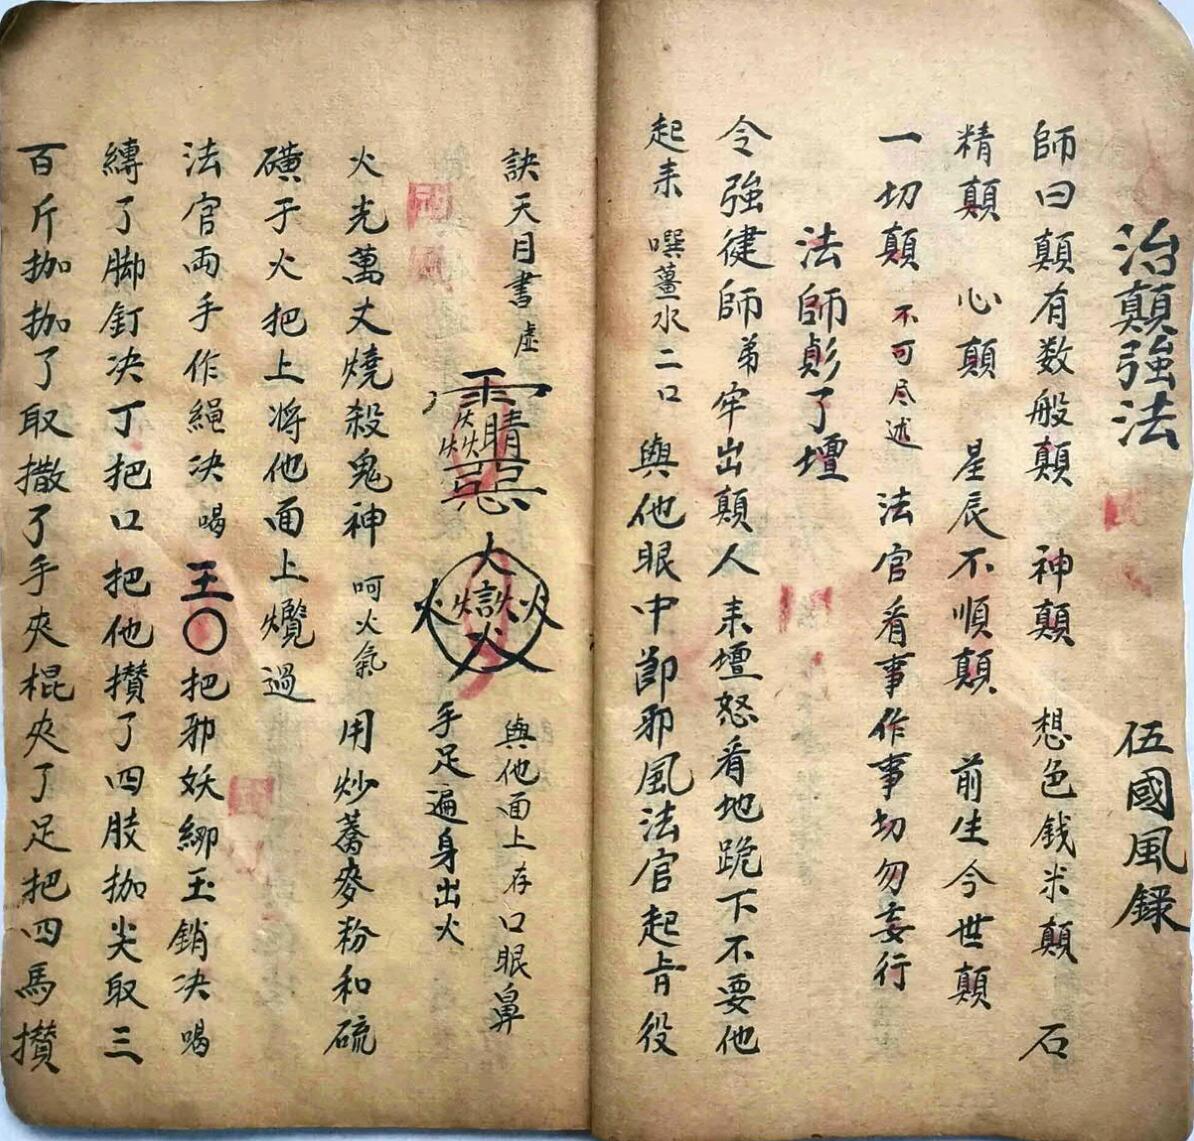 治顛強法 伍國風錄
師曰顛有数般顛 神顛 想色銭米顛 石
精顛 心顛 星辰不順顛 前生今世顛
一切顛 不可尽述 法官看事作事切勿妄行
法師 了壇
令強健師弟牢出顛人耒壇怒看地跪下不要他
起耒 噀薑水二口 與他眼中 邪風法官起 役
訣天目書虛 與他面上存口眼鼻
手足遍身出火
火光萬丈燒殺鬼神 呵火氣 用炒蕎麥粉和硫
磺于火把上将他面上爁過
法官両手作繩决喝 王〇把邪妖綁玉銷决喝
縛了脚釘决丁把口把他攢了四肢拁尖取三
百斤拁拁了取撒了手夾棍夾了足把四馬攢